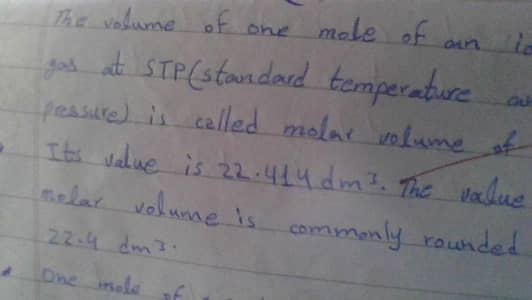 The volume of one mole of an
gas at STP(standard temperature
pressure) is called molar volume of
Its value is 22.414 dm3. The value
molar volume is commonly rounded
22.4 dm3.
One mole of